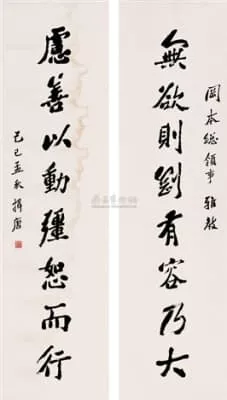 岡本總領事 雅教
無欲則剛有容乃大
慮善以動彊恕而行
己巳孟秋 揖唐